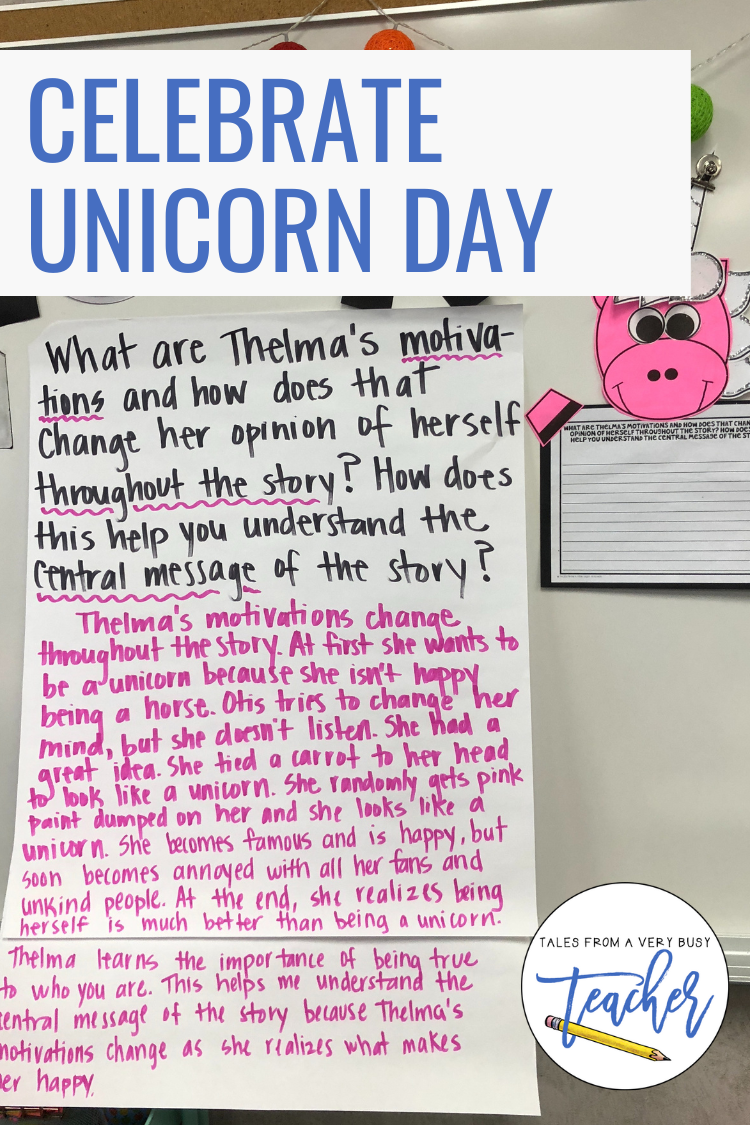 CELEBRATE
UNICORN DAY
What are Thelma's motiva-
tions and how does that
change her opinion of herself
throughout the story? How does
this help you understand the
central message of the story?
Thelma's motivations change
throughout the story. At first she wants to
be a unicorn because she isn't happy
being a horse. Otis tries to change her
mind, but she doesn't listen. She had a
great idea. She tied a carrot to her head
to look like a unicorn. She randomly gets pink
paint dumped on her and she looks like a
unicorn. She becomes famous and is happy, but
soon becomes annoyed with all her fans and
unkind people. At the end, she realizes being
herself is much better than being a unicorn.
Thelma learns the importance of being true
to who you are. This helps me understand the
entral message of the story because Thelma's
notivations change as she realizes what makes
er happy.
WHAT ARE THELMA'S MOTIVATIONS AND HOW DOES THAT CHAN
OPINION OF HERSELF THROUGHOUT THE STORY? HOW DOES
HELP YOU UNDERSTAND THE CENTRAL MESSAGE OF THE ST
TALES FROM A VERY BUSY
teacher